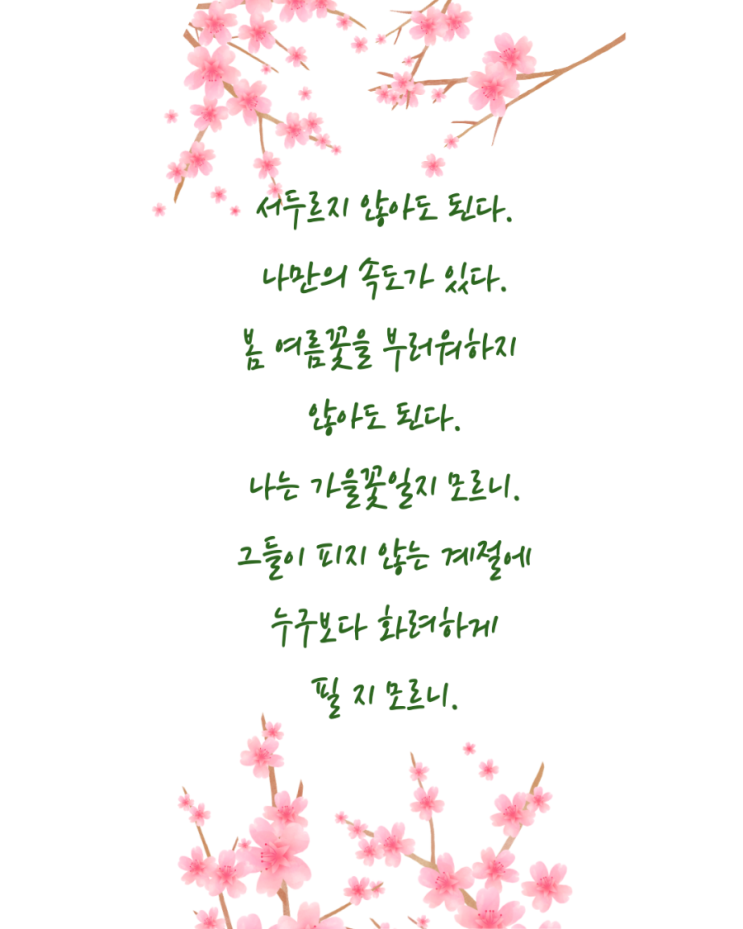 서두르지 않아도 된다.
나만의 속도가 있다.
봄 여름꽃을 부러워하지
않아도 된다.
나는 가을꽃일지 모르니.
그들이 피지 않는 계절에
누구보다 화려하게
필 지 모르니.